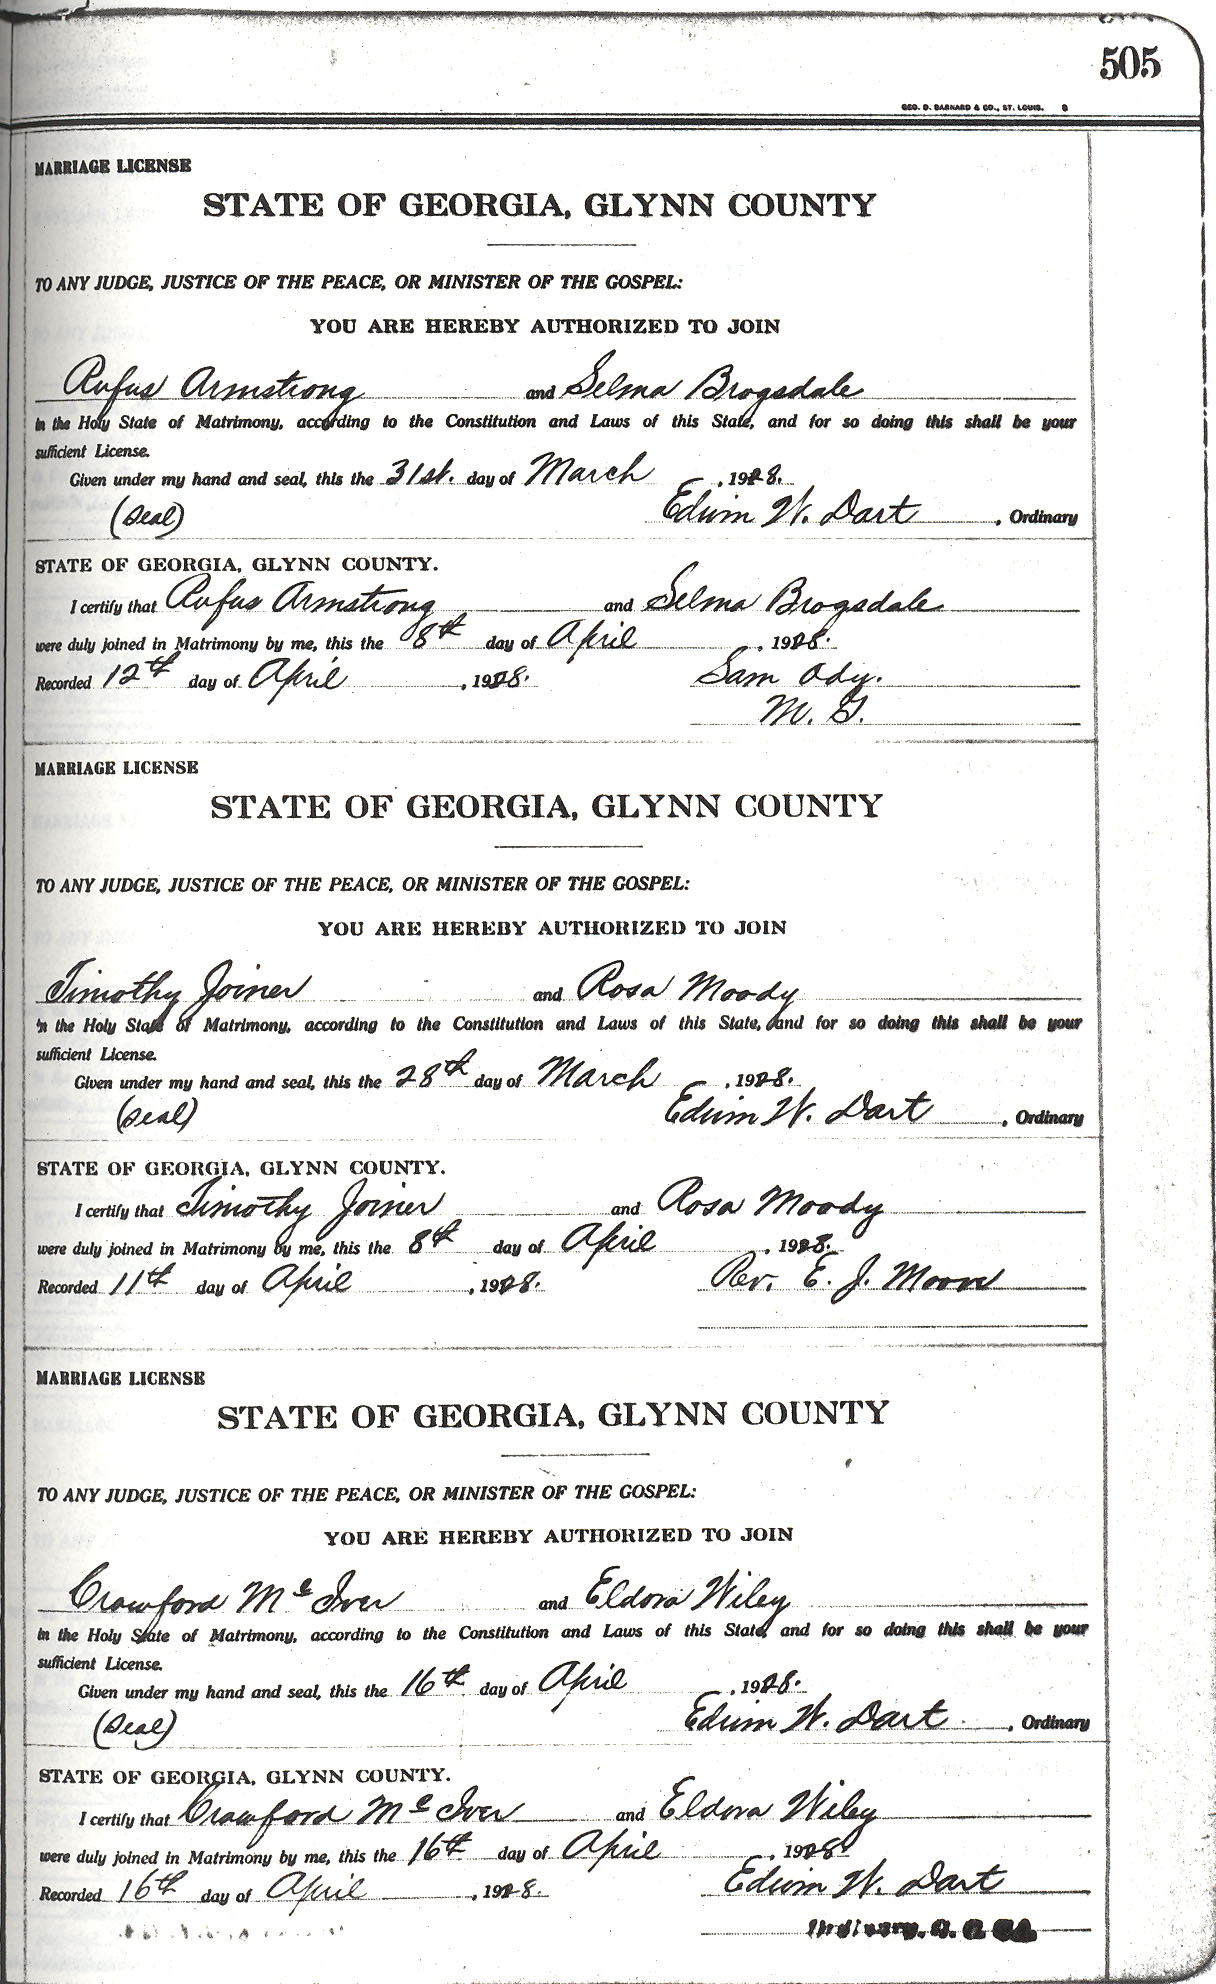 505
GEO. D. BARNARD & CO., ST. LOUIS.
MARRIAGE LICENSE
STATE OF GEORGIA, GLYNN COUNTY
TO ANY JUDGE, JUSTICE OF THE PEACE, OR MINISTER OF THE GOSPEL:
YOU ARE HEREBY AUTHORIZED TO JOIN
Rufus Armstrong and Selma Brogsdale
in the Holy State of Matrimony, according to the Constitution and Laws of this State, and for so doing this shall be your
sufficient License.
Given under my hand and seal, this the 31st. day of March , 1928.
(Seal) Edwin W. Dart , Ordinary
STATE OF GEORGIA, GLYNN COUNTY.
I certify that Rufus Armstrong and Selma Brogsdale
were duly joined in Matrimony by me, this the 8th day of April , 1928.
Recorded 12th day of April , 1928. Sam Ody.
M. G.
MARRIAGE LICENSE
STATE OF GEORGIA, GLYNN COUNTY
TO ANY JUDGE, JUSTICE OF THE PEACE, OR MINISTER OF THE GOSPEL:
YOU ARE HEREBY AUTHORIZED TO JOIN
Timothy Joiner and Rosa Moody
in the Holy State of Matrimony, according to the Constitution and Laws of this State, and for so doing this shall be your
sufficient License.
Given under my hand and seal, this the 28th day of March , 1928.
(Seal) Edwin W. Dart , Ordinary
STATE OF GEORGIA, GLYNN COUNTY.
I certify that Timothy Joiner and Rosa Moody
were duly joined in Matrimony by me, this the 8th day of April , 1928.
Recorded 11th day of April , 1928. Rev. E. J. Moore
MARRIAGE LICENSE
STATE OF GEORGIA, GLYNN COUNTY
TO ANY JUDGE, JUSTICE OF THE PEACE, OR MINISTER OF THE GOSPEL:
YOU ARE HEREBY AUTHORIZED TO JOIN
Crawford McIver and Eldora Wiley
in the Holy State of Matrimony, according to the Constitution and Laws of this State, and for so doing this shall be your
sufficient License.
Given under my hand and seal, this the 16th day of April , 1928.
(Seal) Edwin W. Dart , Ordinary
STATE OF GEORGIA, GLYNN COUNTY.
I certify that Crawford McIver and Eldora Wiley
were duly joined in Matrimony by me, this the 16th day of April , 1928
Recorded 16th day of April , 1928. Edwin W. Dart
Ordinary, G. C. GA.